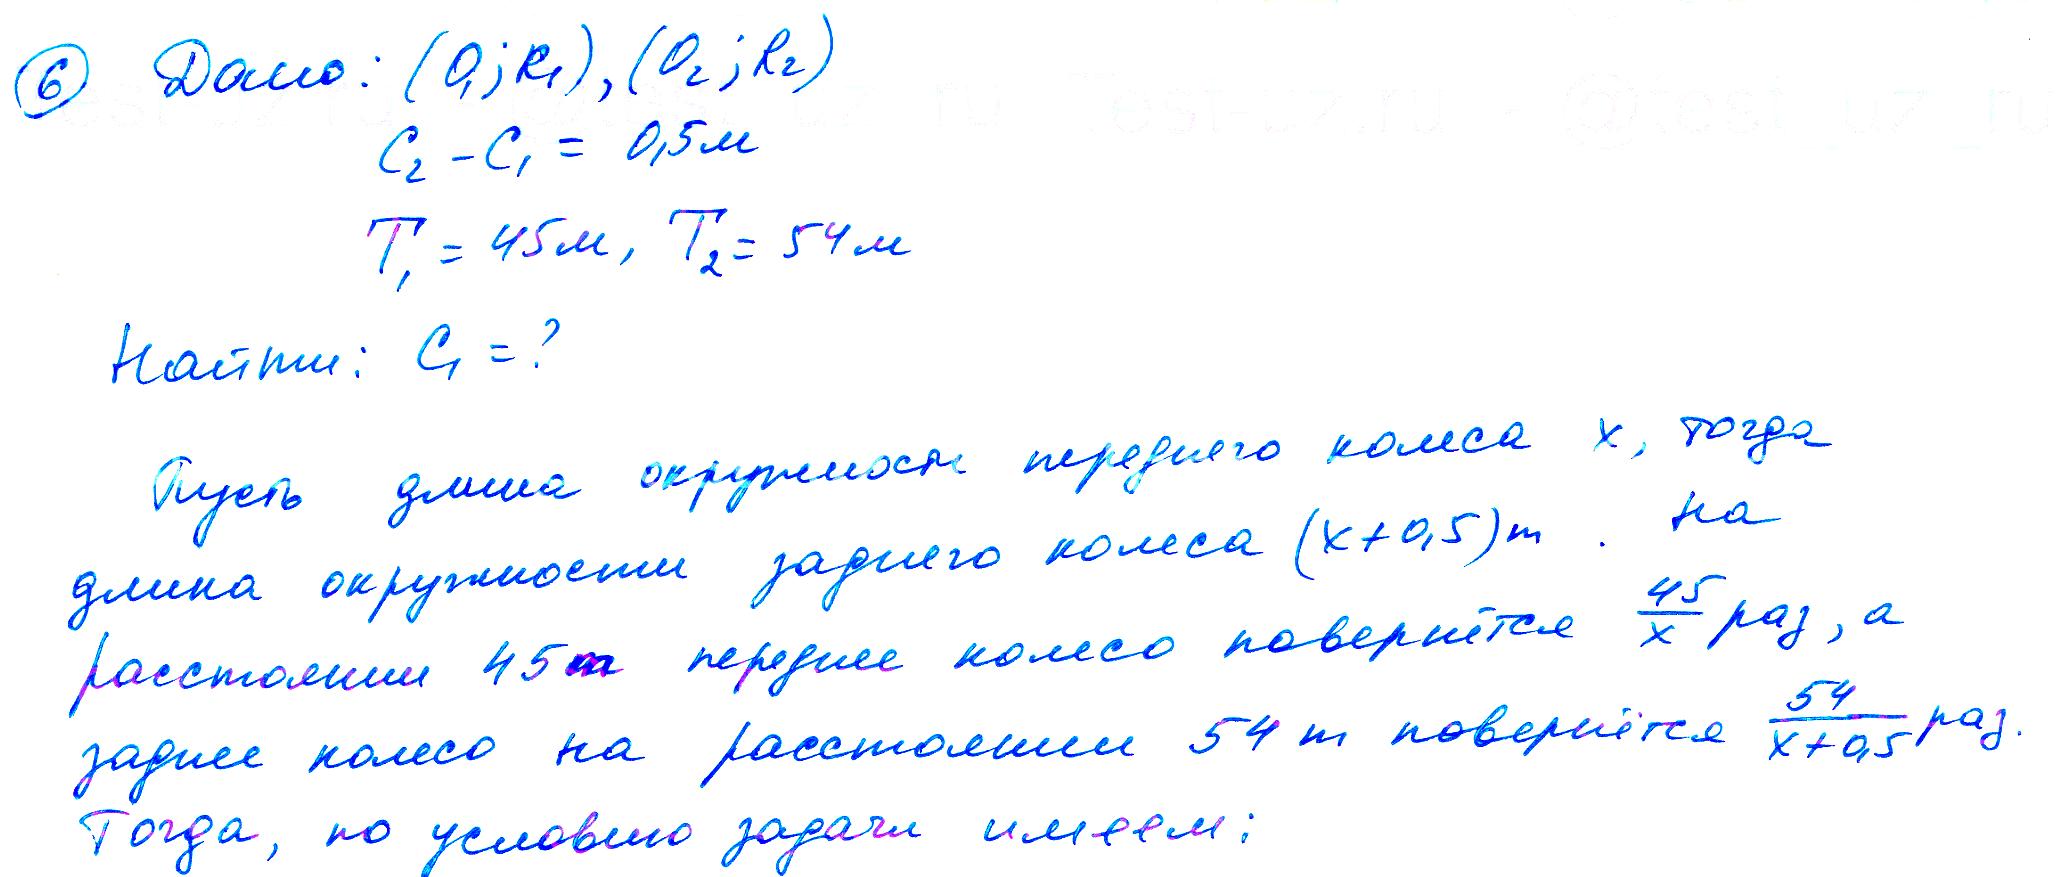 ⑥ Дано: (O₁; R₁), (O₂; R₂)
C₂ - C₁ = 0,5м
T₁ = 45м, T₂ = 54м
Найти: C₁ = ?
Пусть длина окружности переднего колеса x, тогда
длина окружности заднего колеса (x+0,5)m. На
расстоянии 45m переднее колесо повернётся 45/x раз, а
заднее колесо на расстоянии 54m повернётся 54/(x+0,5) раз.
Тогда, по условию задачи имеем: